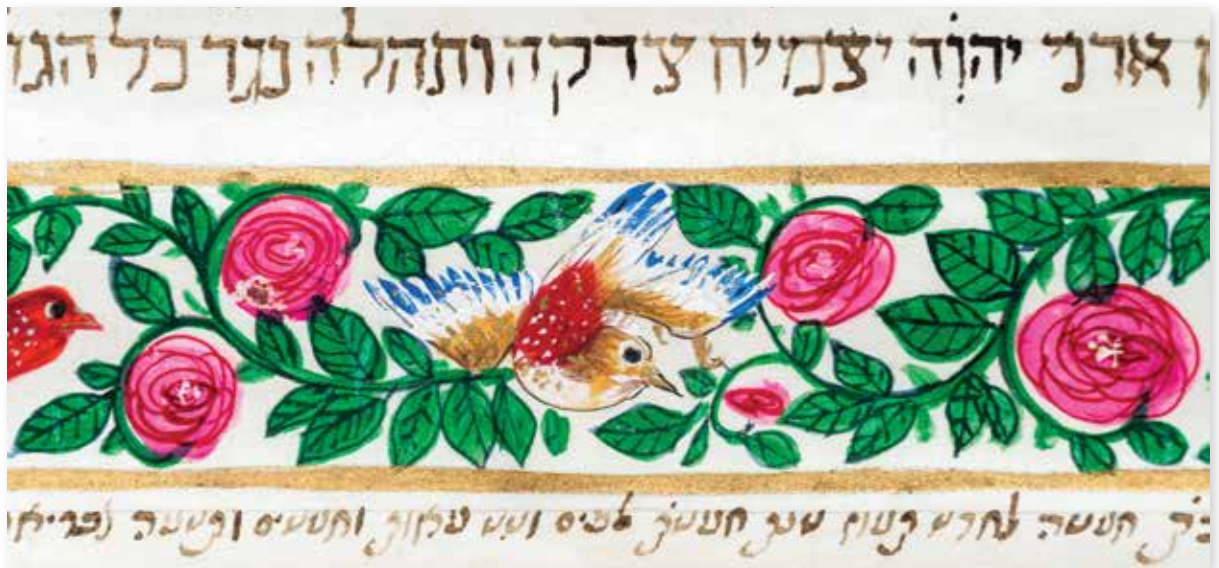 אדני יהוִֹה יצמיח צדקה ותהלה נגד כל הגו
חמשה לחדש תמוז שנת חמשת אלפים ושש מאות וחמשים ותשעה לבריא